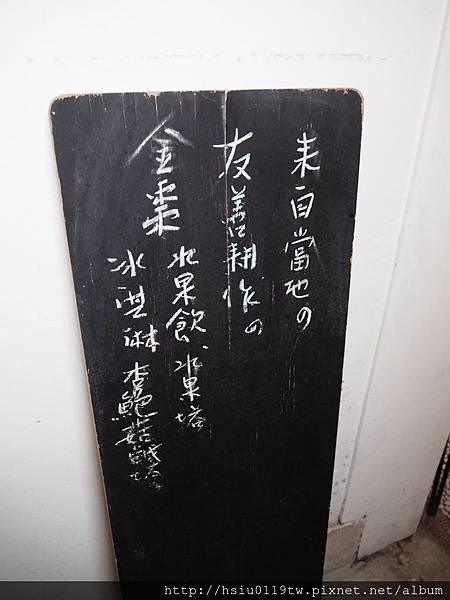 來自當地の
友善耕作の
金棗
水果飲、水果塔
冰淇淋 杏鮑菇鹹塔
http://hsiu0119tw.pixnet.net/album